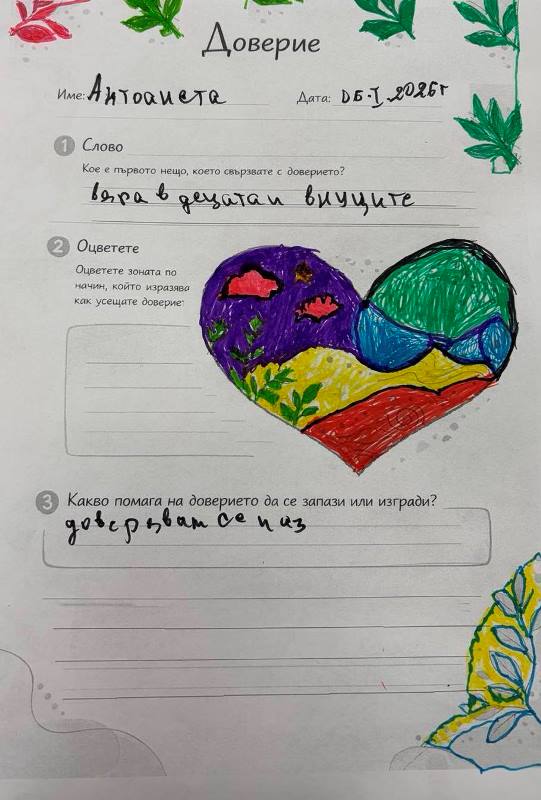 Доверие
Име: Антоанета
Дата: 06.I.2026г
1 Слово
Кое е първото нещо, което свързвате с доверието?
вяра в децата и внуците
2 Оцветете
Оцветете зоната по
начин, който изразява
как усещате доверие:
3 Какво помага на доверието да се запази или изгради?
доверявам се на